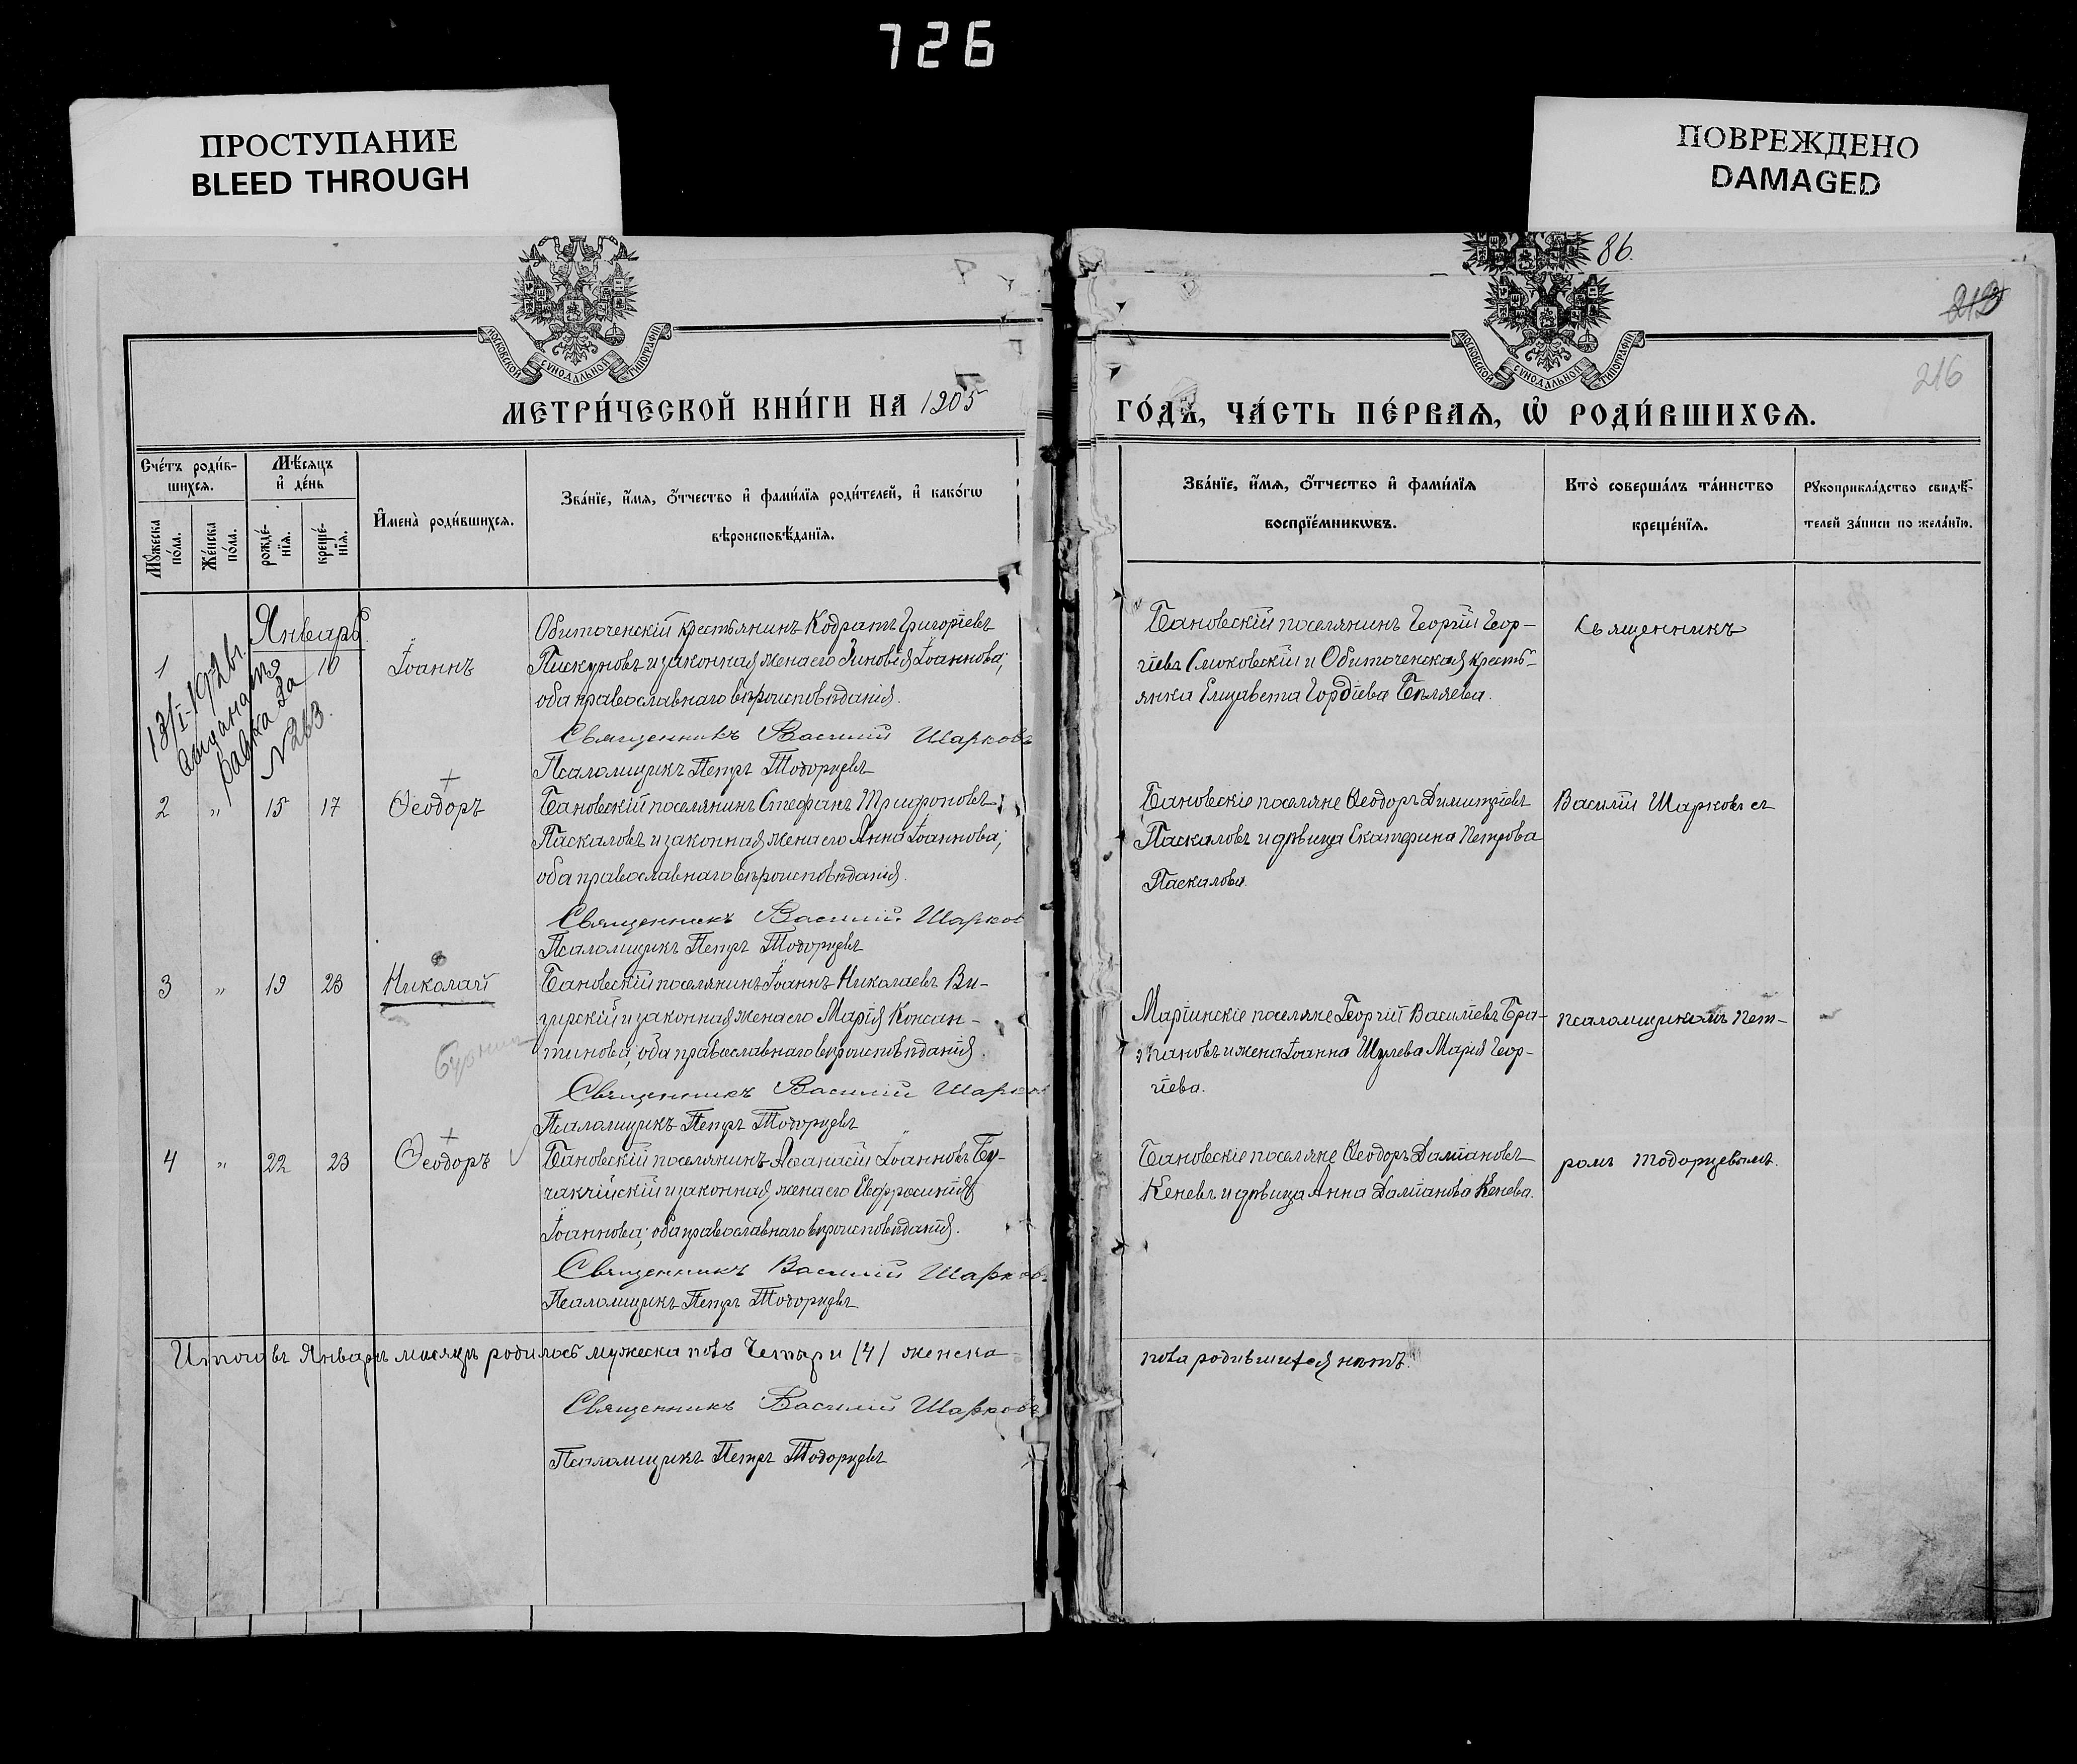 726
ПРОСТУПАНИЕ
BLEED THROUGH
ПОВРЕЖДЕНО
DAMAGED
86.
213
216
МОСКОВСКОЙ СѴНОДАЛЬНОЙ ТИПОГРАФІИ
МОСКОВСКОЙ СѴНОДАЛЬНОЙ ТИПОГРАФІИ
МЕТРИ́ЧЕСКОЙ КНИ́ГИ НА 1905
ГО́ДЪ, ЧА́СТЬ ПЕ́РВАѦ, Ѽ РОДИ́ВШИХСѦ.
Сче́тъ роди́в-
шихсѧ.
Мѣ́сѧцъ
и҆ де́нь
Мꙋ́жеска
по́ла.
Же́нска
по́ла.
рожде́-
нїѧ.
креще́-
нїѧ.
И҆мена̀ роди́вшихсѧ.
Зва́нїе, и҆́мѧ, ѻ҆́тчество и҆ фами́лїѧ роди́телей, и҆ како́гѡ
вѣроисповѣ́данїѧ.
Зва́нїе, и҆́мѧ, ѻ҆́тчество и҆ фами́лїѧ
воспрїе́мникѡвъ.
Кто̀ соверша́лъ та́инство
креще́нїѧ.
Рꙋкоприкла́дство свидѣ́-
телей за́писи по жела́нїю.
Январь
1 10 Іоаннъ
13/I-1912 г.
за
N 263.
Обиточенскій крестьянинъ Кодратъ Григоріевъ
Пискуновъ и законная жена его Зиновія Іоаннова;
оба православнаго вѣроисповѣданія.
Священникъ Василій Шарковъ
Псаломщикъ Петръ Тодорцевъ
Бановскій поселянинъ Георгій Геор-
гіевъ Смоковскій и Обиточенская кресть-
янка Елизавета Гордіева Бѣляева.
Священникъ
2 " 15 17 Ѳеодоръ
Бановскій поселянинъ Стефанъ Трифоновъ
Паскаловъ и законная жена его Анна Іоаннова;
оба православнаго вѣроисповѣданія.
Священникъ Василій Шарков
Псаломщикъ Петръ Тодорцевъ
Бановскіе поселяне Ѳеодоръ Димитріевъ
Паскаловъ и дѣвица Екатерина Петрова
Паскалова
Василій Шарковъ съ
3 " 19 23 Николай
Бановскій поселянинъ Іоаннъ Николаевъ Ви-
зирскій и законная жена его Марія Констан-
тинова; оба православнаго вѣроисповѣданія.
Священникъ Василій Шарков
Псаломщикъ Петръ Тодорцевъ
Маріинскіе поселяне Георгій Василіевъ Бра-
тановъ и жена Іоанна Шулева Марія Геор-
гіева.
псаломщикомъ Пет-
4 " 22 23 Ѳеодоръ
Бановскій поселянинъ Аѳанасій Іоанновъ Бу-
чакчійскій и законная жена его Евфросинія
Іоаннова; оба православнаго вѣроисповѣданія.
Священникъ Василій Шарковъ
Псаломщикъ Петръ Тодорцевъ
Бановскіе поселяне Ѳеодоръ Даміановъ
Кеневъ и дѣвица Анна Даміанова Кенева.
ромъ Тодорцевымъ.
Итого въ Январѣ мѣсяцѣ родилось мужеска пола Четыри /4/ женска
пола родившихся нѣтъ.
Священникъ Василій Шарковъ
Псаломщикъ Петръ Тодорцевъ